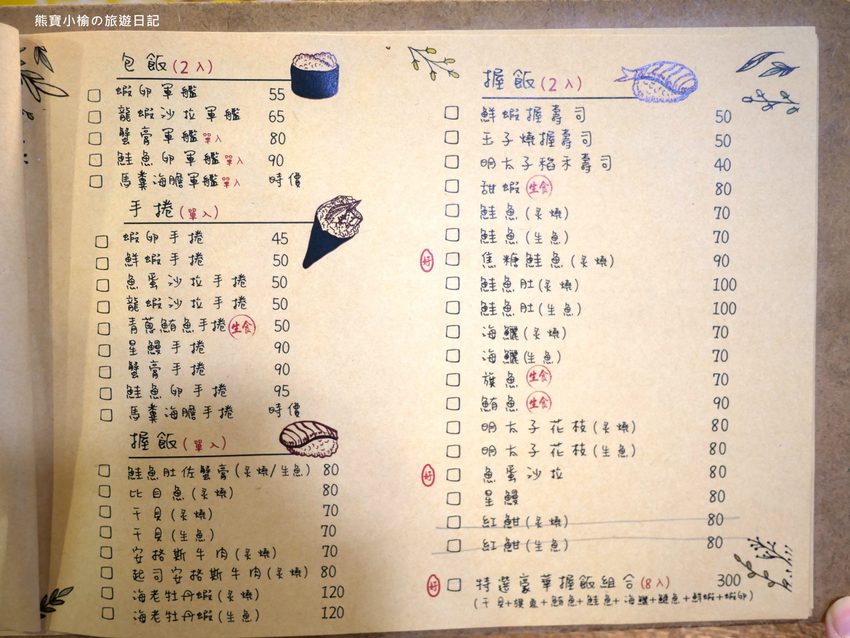 熊寶小榆の旅遊日記
包飯(2入)
蝦卵軍艦 55
龍蝦沙拉軍艦 65
蟹膏軍艦 單入 80
鮭魚卵軍艦 單入 90
馬糞海膽軍艦 單入 時價
手捲(單入)
蝦卵手捲 45
鮮蝦手捲 50
魚蛋沙拉手捲 50
龍蝦沙拉手捲 50
青蔥鮪魚手捲 生食 50
星鰻手捲 90
蟹膏手捲 90
鮭魚卵手捲 95
馬糞海膽手捲 時價
握飯(單入)
鮭魚肚佐蟹膏(炙燒/生魚) 80
比目魚(炙燒) 80
干貝(炙燒) 70
干貝(生魚) 70
安格斯牛肉(炙燒) 70
起司安格斯牛肉(炙燒) 80
海老牡丹蝦(炙燒) 120
海老牡丹蝦(生魚) 120
握飯(2入)
鮮蝦握壽司 50
玉子燒握壽司 50
明太子稻禾壽司 40
甜蝦 生食 80
鮭魚(炙燒) 70
鮭魚(生魚) 70
好 焦糖鮭魚(炙燒) 90
鮭魚肚(炙燒) 100
鮭魚肚(生魚) 100
海鱺(炙燒) 70
海鱺(生魚) 70
旗魚 生食 70
鮪魚 生食 90
明太子花枝(炙燒) 80
明太子花枝(生魚) 80
好 魚蛋沙拉 80
星鰻 80
紅魽(炙燒) 80
紅魽(生魚) 80
好 特選豪華握飯組合(8入) 300
(干貝+旗魚+鮪魚+鮭魚+海鱺+鰱魚+鮮蝦+蝦卵)